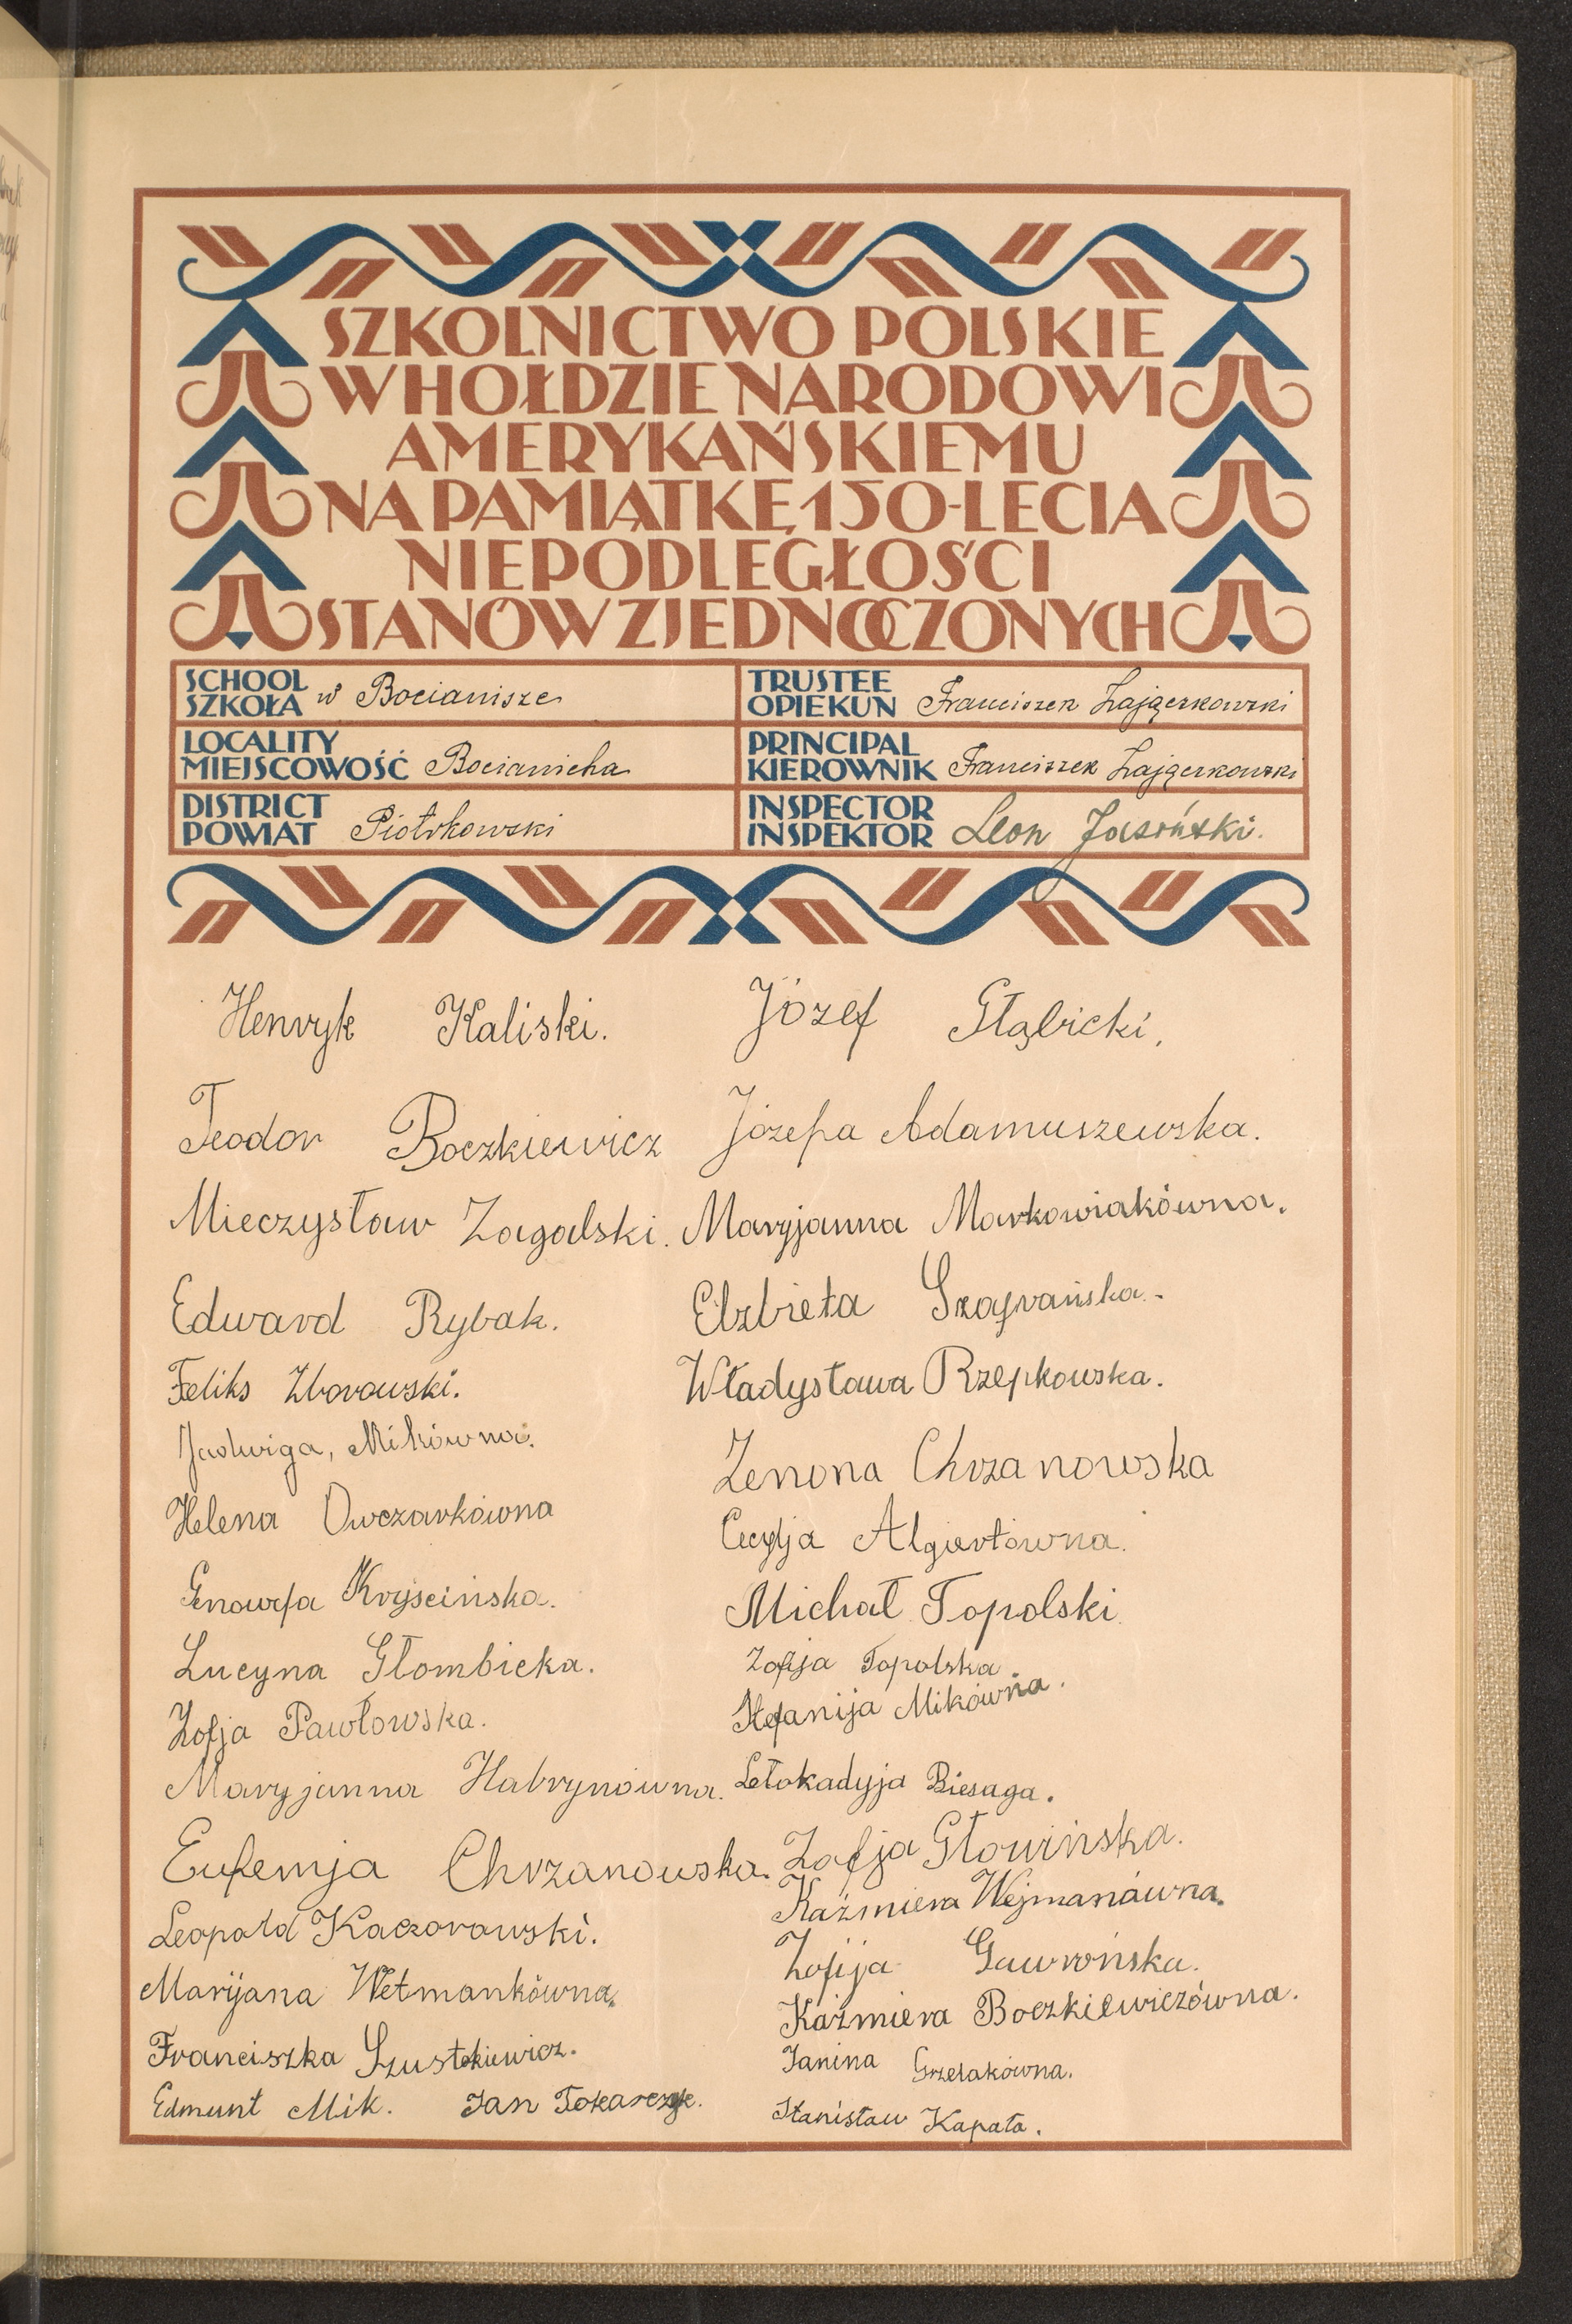 SZKOLNICTWO POLSKIE
W HOŁDZIE NARODOWI
AMERYKAŃSKIEMU
NA PAMIĄTKĘ 150-LECIA
NIEPODLEGŁOŚCI
STANÓW ZJEDNOCZONYCH
SCHOOL
SZKOŁA w Bocianisze
TRUSTEE
OPIEKUN Franciszek Zajączkowski
LOCALITY
MIEJSCOWOŚĆ Bocianicha
PRINCIPAL
KIEROWNIK Franciszek Zajączkowski
DISTRICT
POWIAT Piotrkowski
INSPECTOR
INSPEKTOR Leon Jasiński.
Henryk Kaliski.
Teodor Boczkiewicz
Mieczysław Zagalski.
Edward Rybak.
Feliks Zborowski.
Jadwiga, Mikówna.
Helena Owczarkówna
Genowefa Kryścińska.
Lucyna Głombicka.
Zofja Pawłowska.
Maryjanna Habrynówna.
Eufemja Chrzanowska.
Leopold Kaczorowski.
Marijana Wetmankówna.
Franciszka Szustekiewicz.
Edmunt Mik. Jan Tokarczyk.
Józef Głąbicki,
Józefa Adamuszewska.
Maryjanna Markowiakówna.
Elzbieta
Władysława Rzepkowska.
Zenona Chrzanowska
Cecylja Algiertówna.
Michał Topolski
Zofija Topolska
Stefanija Mikówna.
Lełokadyja Biesaga.
Zofja Głowińska.
Kaźmiera Wejmanówna.
Zofija Gawrońska.
Kaźmiera Boczkiewiczówna.
Janina Grzelakówna.
Stanisław Kapała.